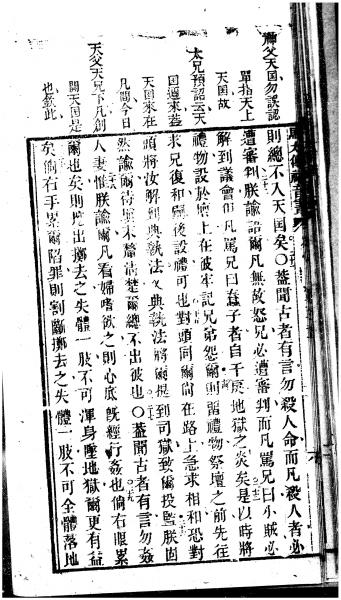 天国勿誤認
單指天上
天国故
太兄預詔云天
国邇來葢
天国來在
凡間今日
天父天兄下凡創
開天国是
也欽此
則總不入天国矣○葢聞古者有言勿殺人命而凡殺人者必
遭審判朕諭爾凡無故怒兄必遭審判而凡罵兄曰小賊必
解到議會但凡罵兄曰蠢子者自干戾地獄之炎矣是以時將
禮物設於壇上在彼牢記兄弟怨爾則留禮物祭壇之前先往
求兄復和而後設禮可也對頭同爾尚在路上急求相和恐對
頭將汝解到典執法又典執法將爾提到司獄致爾投監朕固
然諭爾每厘未釐清楚爾總不出彼也○葢聞古者有言勿姦
人妻惟朕諭爾凡看婦嗜欲之則心底旣經行姦也倘右眼累
爾也矣則剜出擲去之失體一肢不可渾身墜地獄爾更有益
矣倘右手累爾陷罪則割斷擲去之失體一肢不可全體落地